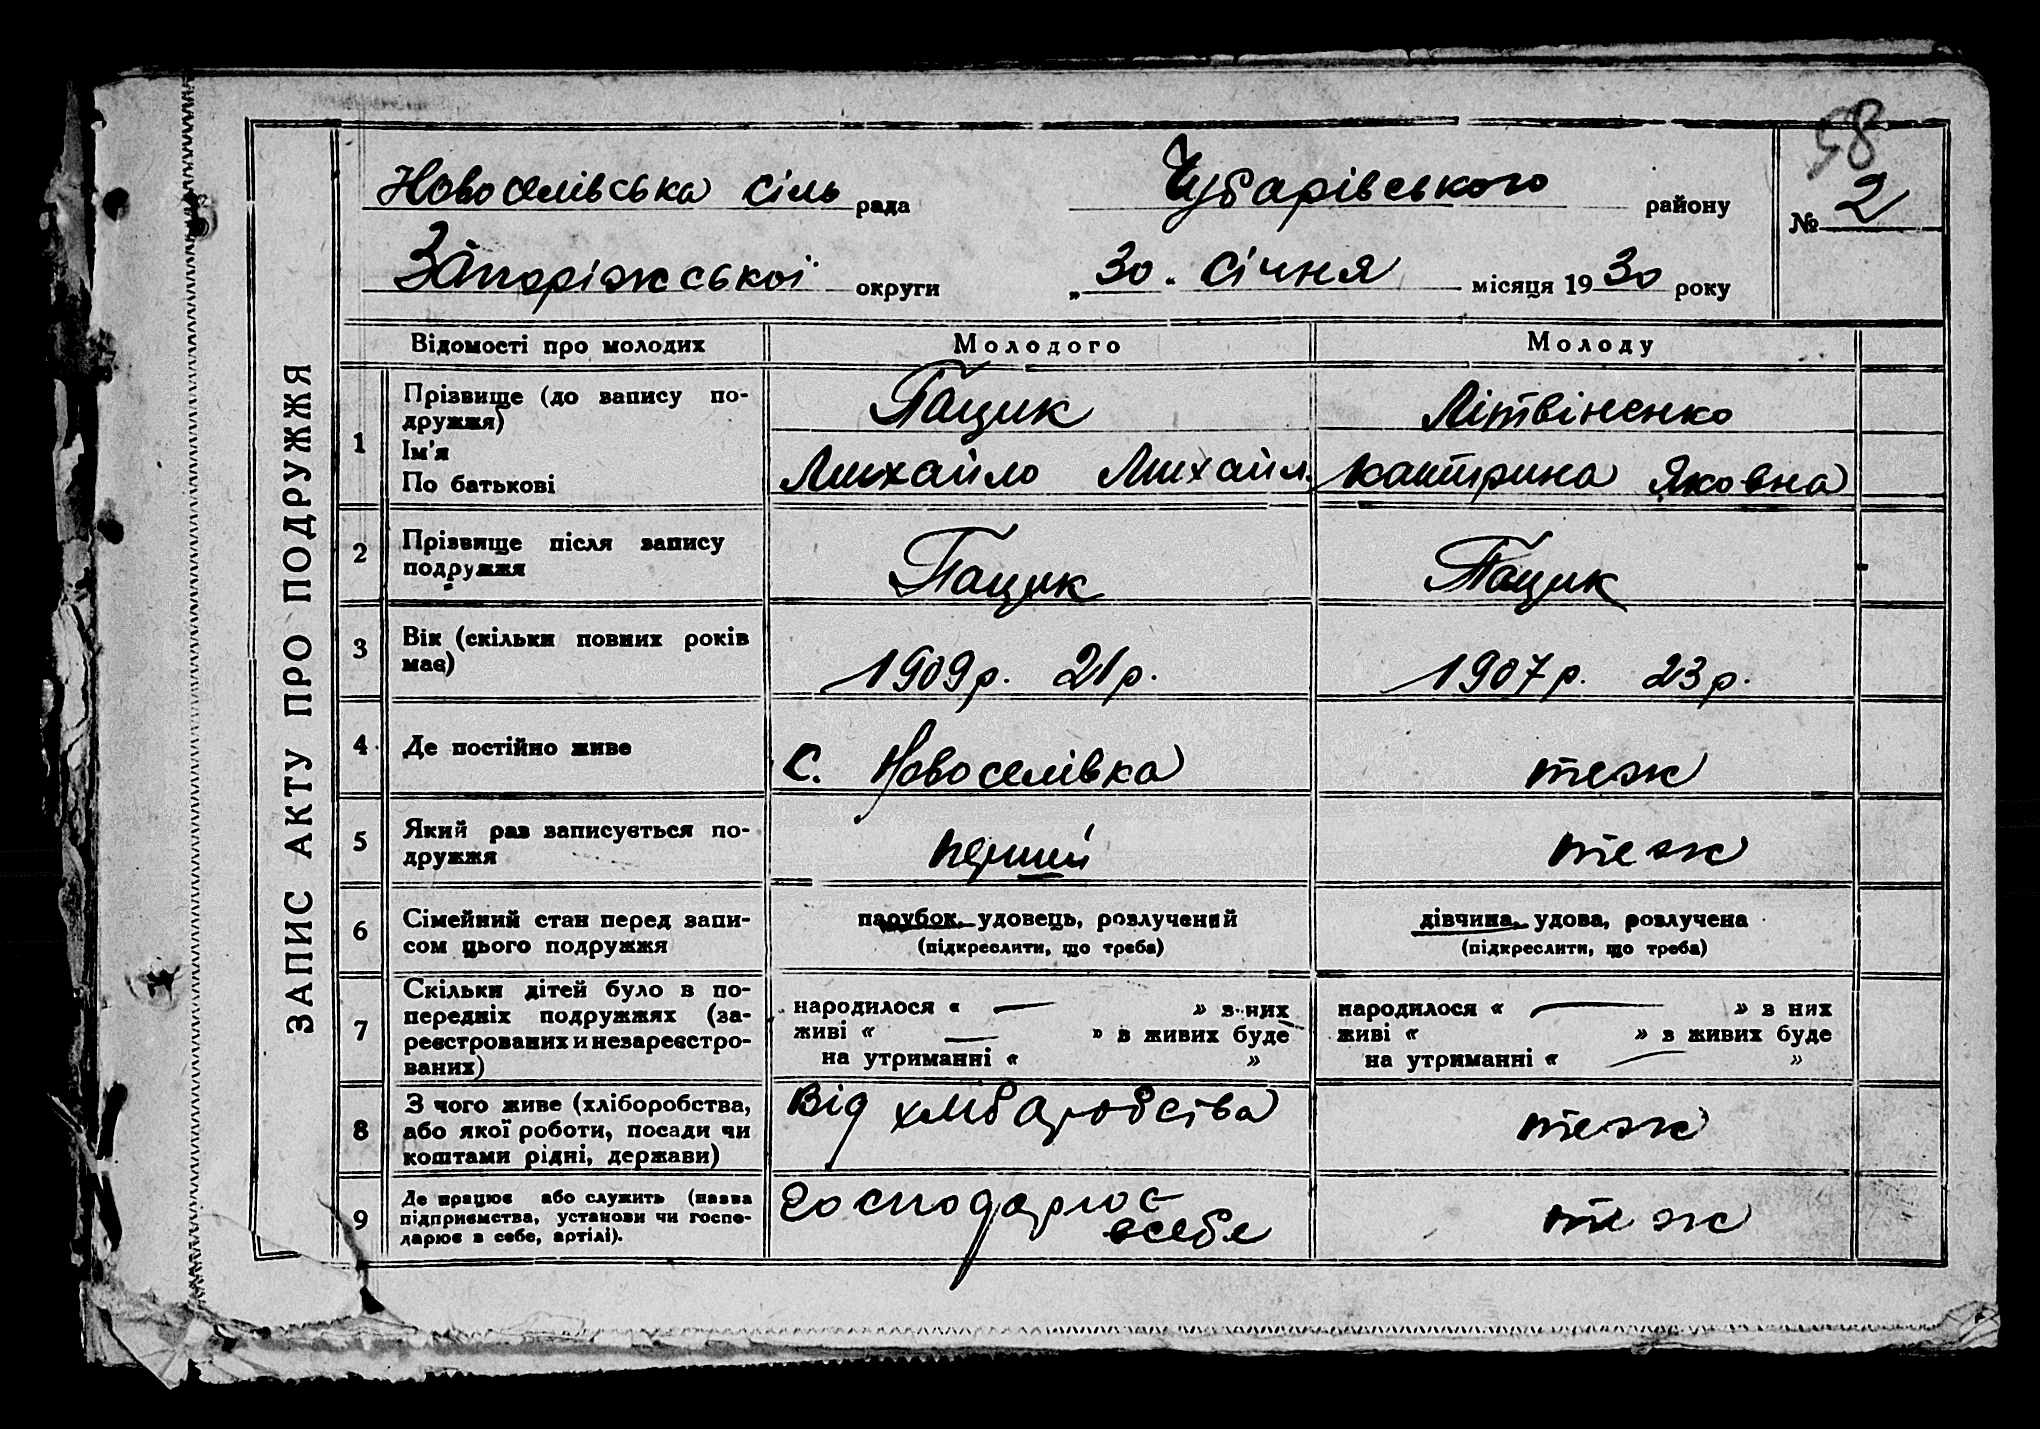 98
Новоселівська сіль рада Чубарівського району № 2
Запоріжської округи „ 30 „ січня місяця 1930 року
ЗАПИС АКТУ ПРО ПОДРУЖЖЯ
Відомості про молодих Молодого Молоду
1 Прізвище (до запису по-
дружжя) Пащик Літвіненко
Ім'я
По батькові Михайло Михайл. Каттрина Яковна
2 Прізвище після запису
подружжя Пащик Пащик
3 Вік (скільки повних років
має) 1909р. 21р. 1907р. 23р.
4 Де постійно живе с. Новоселівка теж
5 Який раз записується по-
дружжя перший теж
6 Сімейний стан перед запи-
сом цього подружжя
парубок, удовець, розлучений дівчина, удова, розлучена
(підкреслити, що треба) (підкреслити, що треба)
7 Скільки дітей було в по-
передніх подружжях (за-
реєстрованих и незареєстро-
ваних)
народилося « — » в них народилося « — » в них
живі « — » в живих буде живі « » в живих буде
на утриманні « » на утриманні « — »
8 З чого живе (хліборобства,
або якої роботи, посади чи
коштами рідні, держави)
від хлібаробства теж
9 Де працює або служить (назва
підприємства, установи чи госпо-
дарює в себе, артілі).
господарює
всебе теж